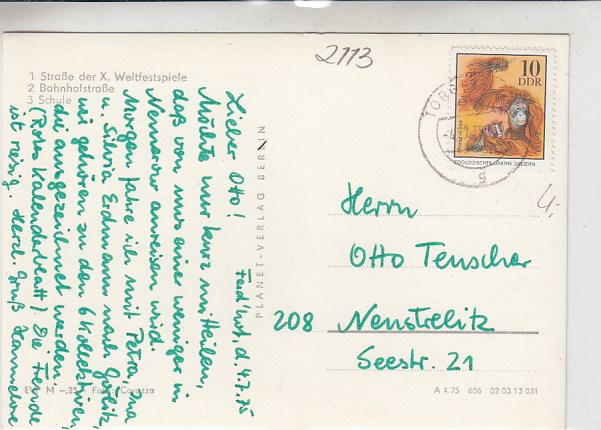 2113
1 Straße der X. Weltfestspiele
2 Bahnhofstraße
3 Schule
10
DDR
ZOOLOGISCHER GARTEN DRESDEN
TORG
g
4,-
Fried'lust, d. 4.7.75
Lieber Otto!
Möchte nur kurz mitteilen,
daß von uns eine weniger in
Nemerow anreisen wird.
Morgen fahre ich mit Petra, Ina
u. Silvia Erdmann nach Görlitz,
wir gehören zu den 6 Kollektiven,
die ausgezeichnet werden
(Rotes Kalenderblatt). Die Freude
ist riesig. Herzl. Gruß Hannelore
PLANET-VERLAG BERLIN
Herrn
Otto Teuscher
208 Neustrelitz
Seestr. 21
EVP M -,25 Foto: Corazza
A 4.75 606 02 03 13 031